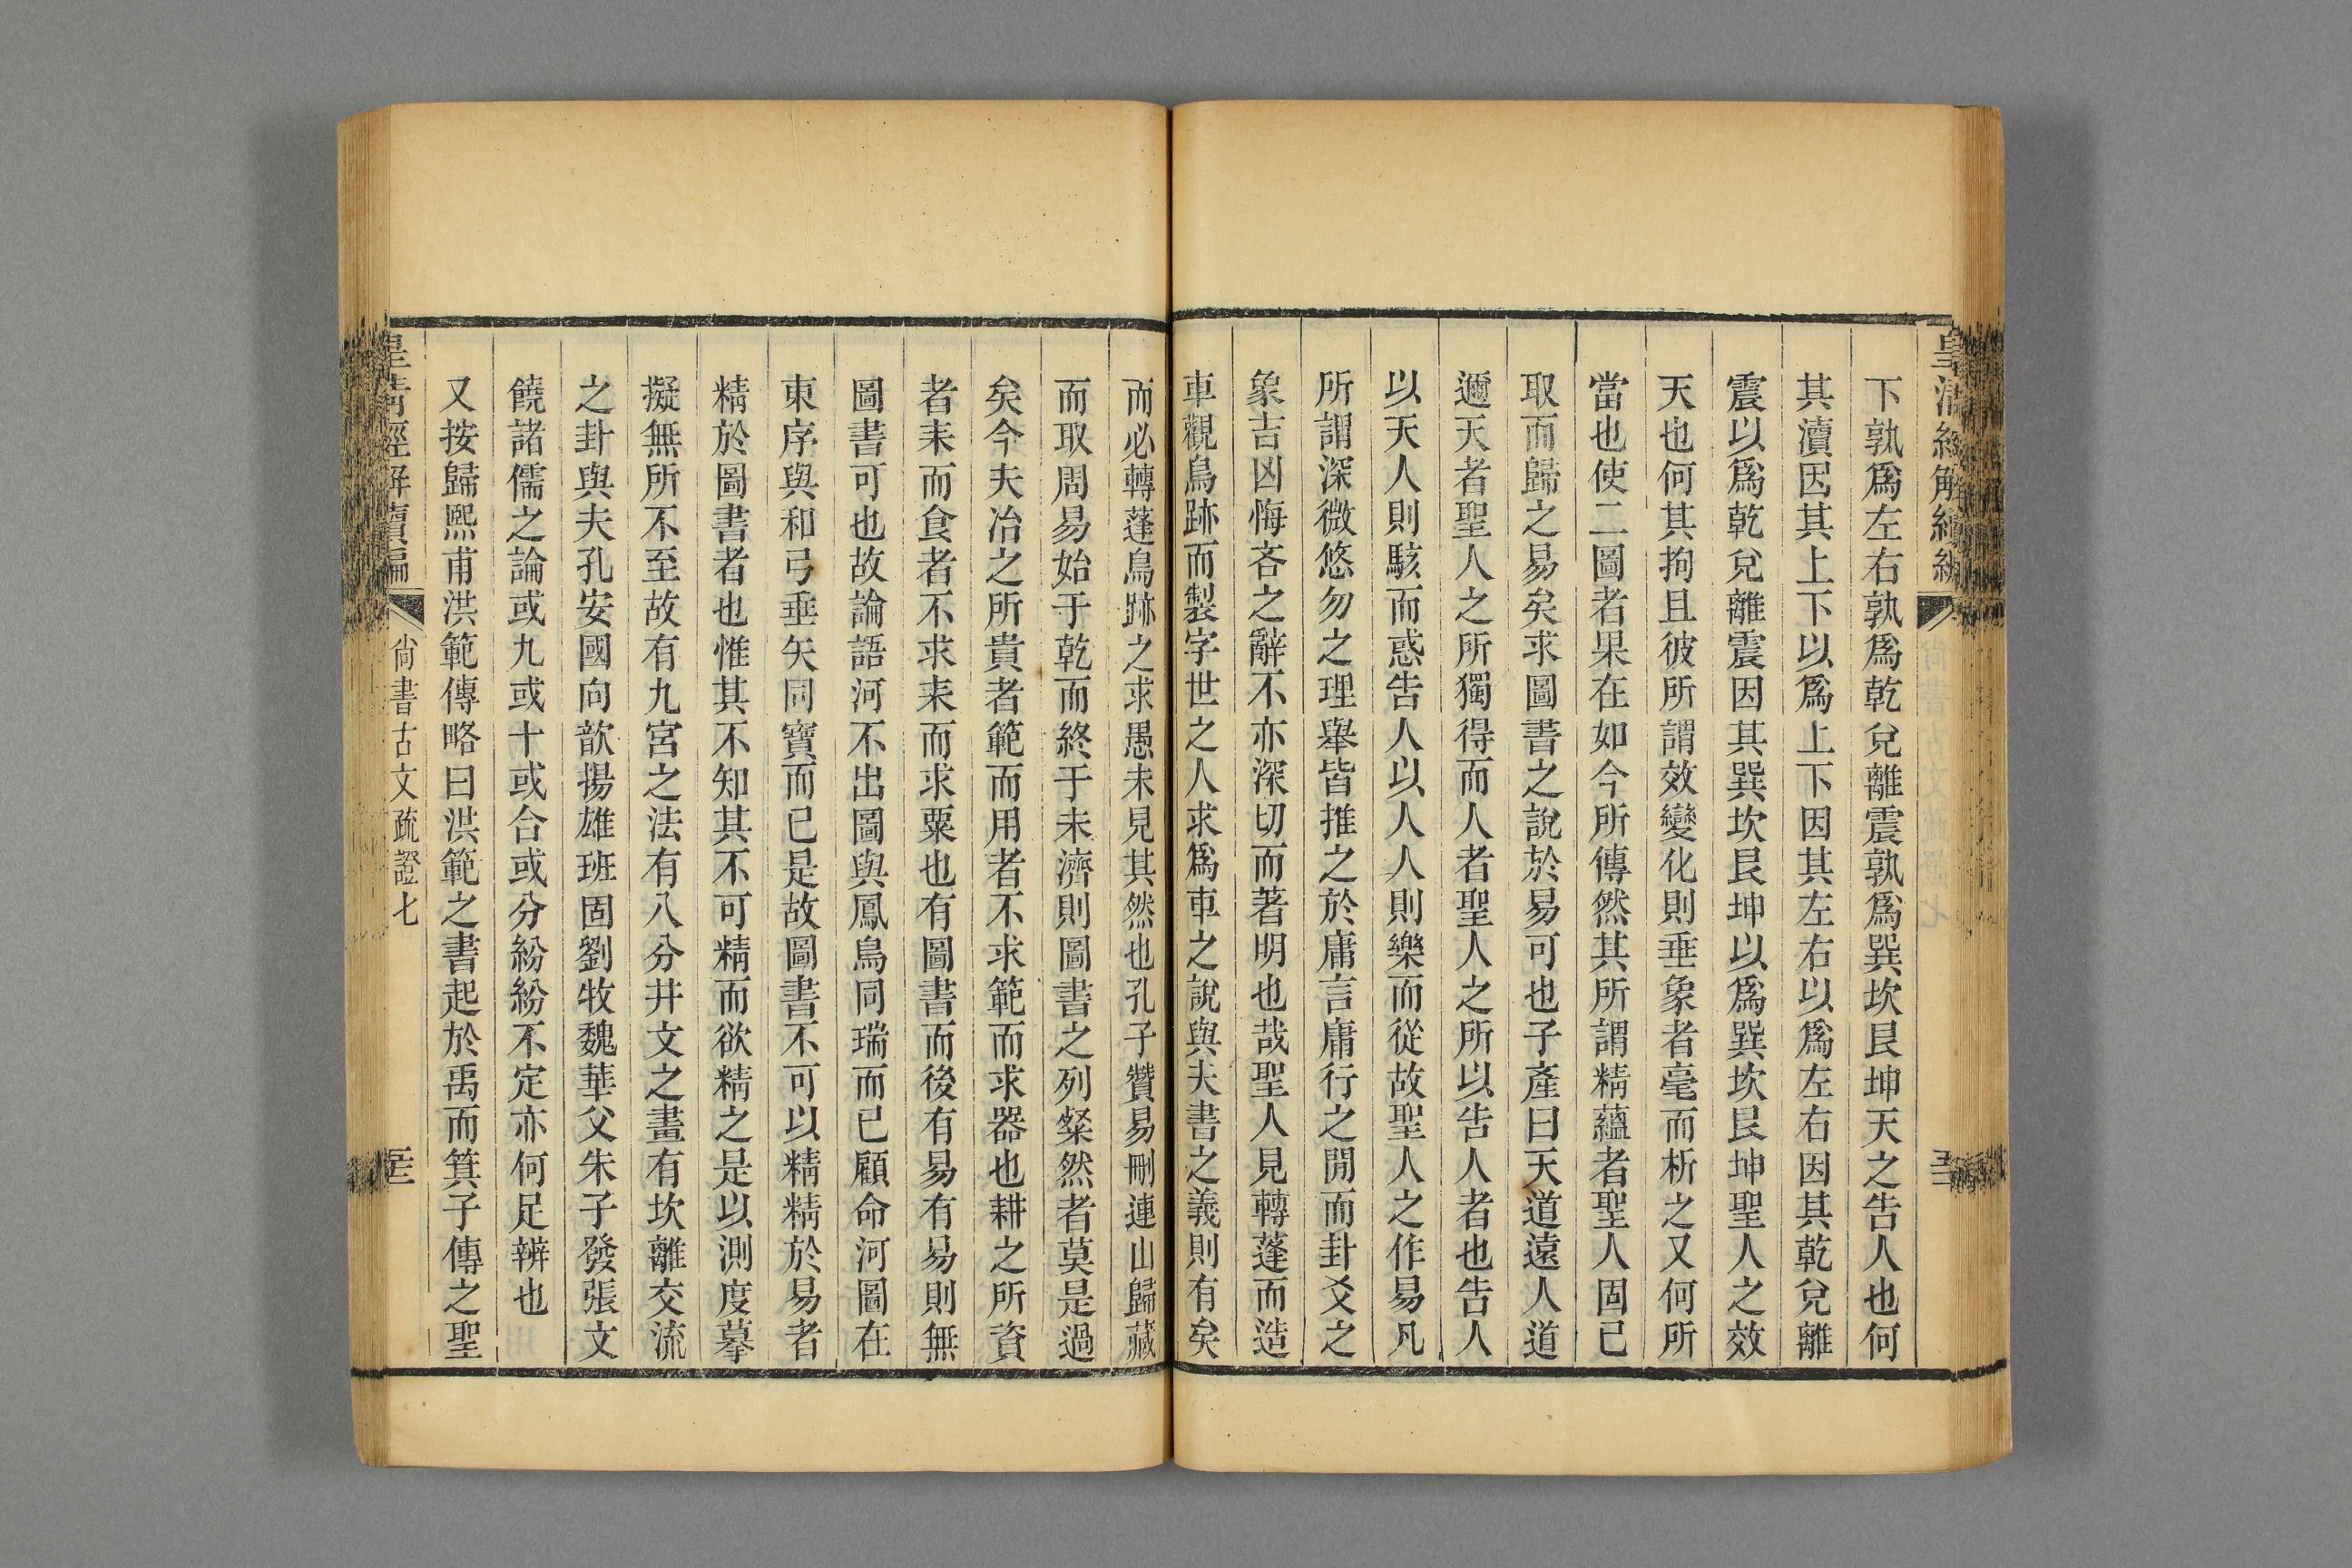 下孰爲左右孰爲乾兌離震孰爲巽坎艮坤天之告人也何
其瀆因其上下以爲上下因其左右以爲左右因其乾兌離
震以爲乾兌離震因其巽坎艮坤以爲巽坎艮坤聖人之效
天也何其拘且彼所謂效變化則垂象者毫而析之又何所
當也使二圖者果在如今所傳然其所謂精蘊者聖人固已
取而歸之易矣求圖書之說於易可也子產曰天道遠人道
邇天者聖人之所獨得而人者聖人之所以告人者也告人
以天人則駭而惑告人以人人則樂而從故聖人之作易凡
所謂深微悠忽之理舉皆推之於庸言庸行之閒而卦爻之
象吉凶悔吝之辭不亦深切而著明也哉聖人見轉蓬而造
車觀鳥跡而製字世之人求爲車之說與夫書之義則有矣
而必轉蓬鳥跡之求愚未見其然也孔子贊易刪連山歸藏
而取周易始于乾而終于未濟則圖書之列粲然者莫是過
矣今夫冶之所貴者範而用者不求範而求器也耕之所資
者耒而食者不求耒而求粟也有圖書而後有易有易則無
圖書可也故論語河不出圖與鳳鳥同瑞而已顧命河圖在
東序與和弓垂矢同寶而已是故圖書不可以精精於易者
精於圖書者也惟其不知其不可精而欲精之是以測度摹
擬無所不至故有九宮之法有八分井文之畫有坎離交流
之卦與夫孔安國向歆揚雄班固劉牧魏華父朱子發張文
饒諸儒之論或九或十或合或分紛紛不定亦何足辨也
又按歸熙甫洪範傳略曰洪範之書起於禹而箕子傳之聖
皇清經解續編
尚書古文疏證七